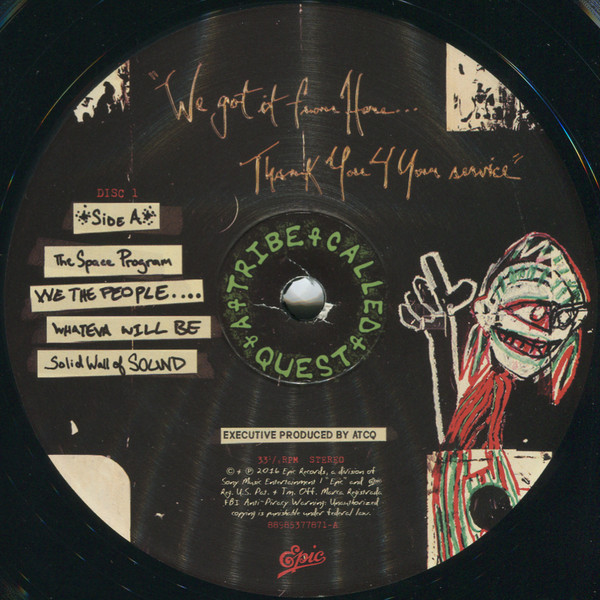 "We got it from Here...
Thank You 4 Your service"
DISC 1
*SIDE A*
The Space Program
WE THE PEOPLE....
WHATEVA WILL BE
Solid Wall of SOUND
A + TRIBE + CALLED + QUEST +
EXECUTIVE PRODUCED BY ATCQ
33⅓ RPM STEREO
© + ℗ 2016 Epic Records, a division of
Sony Music Entertainment / "Epic" and
Reg. U.S. Pat. + Tm. Off. Marca Registrada
FBI Anti-Piracy Warning: Unauthorized
copying is punishable under federal law.
88985377871-A
Epic